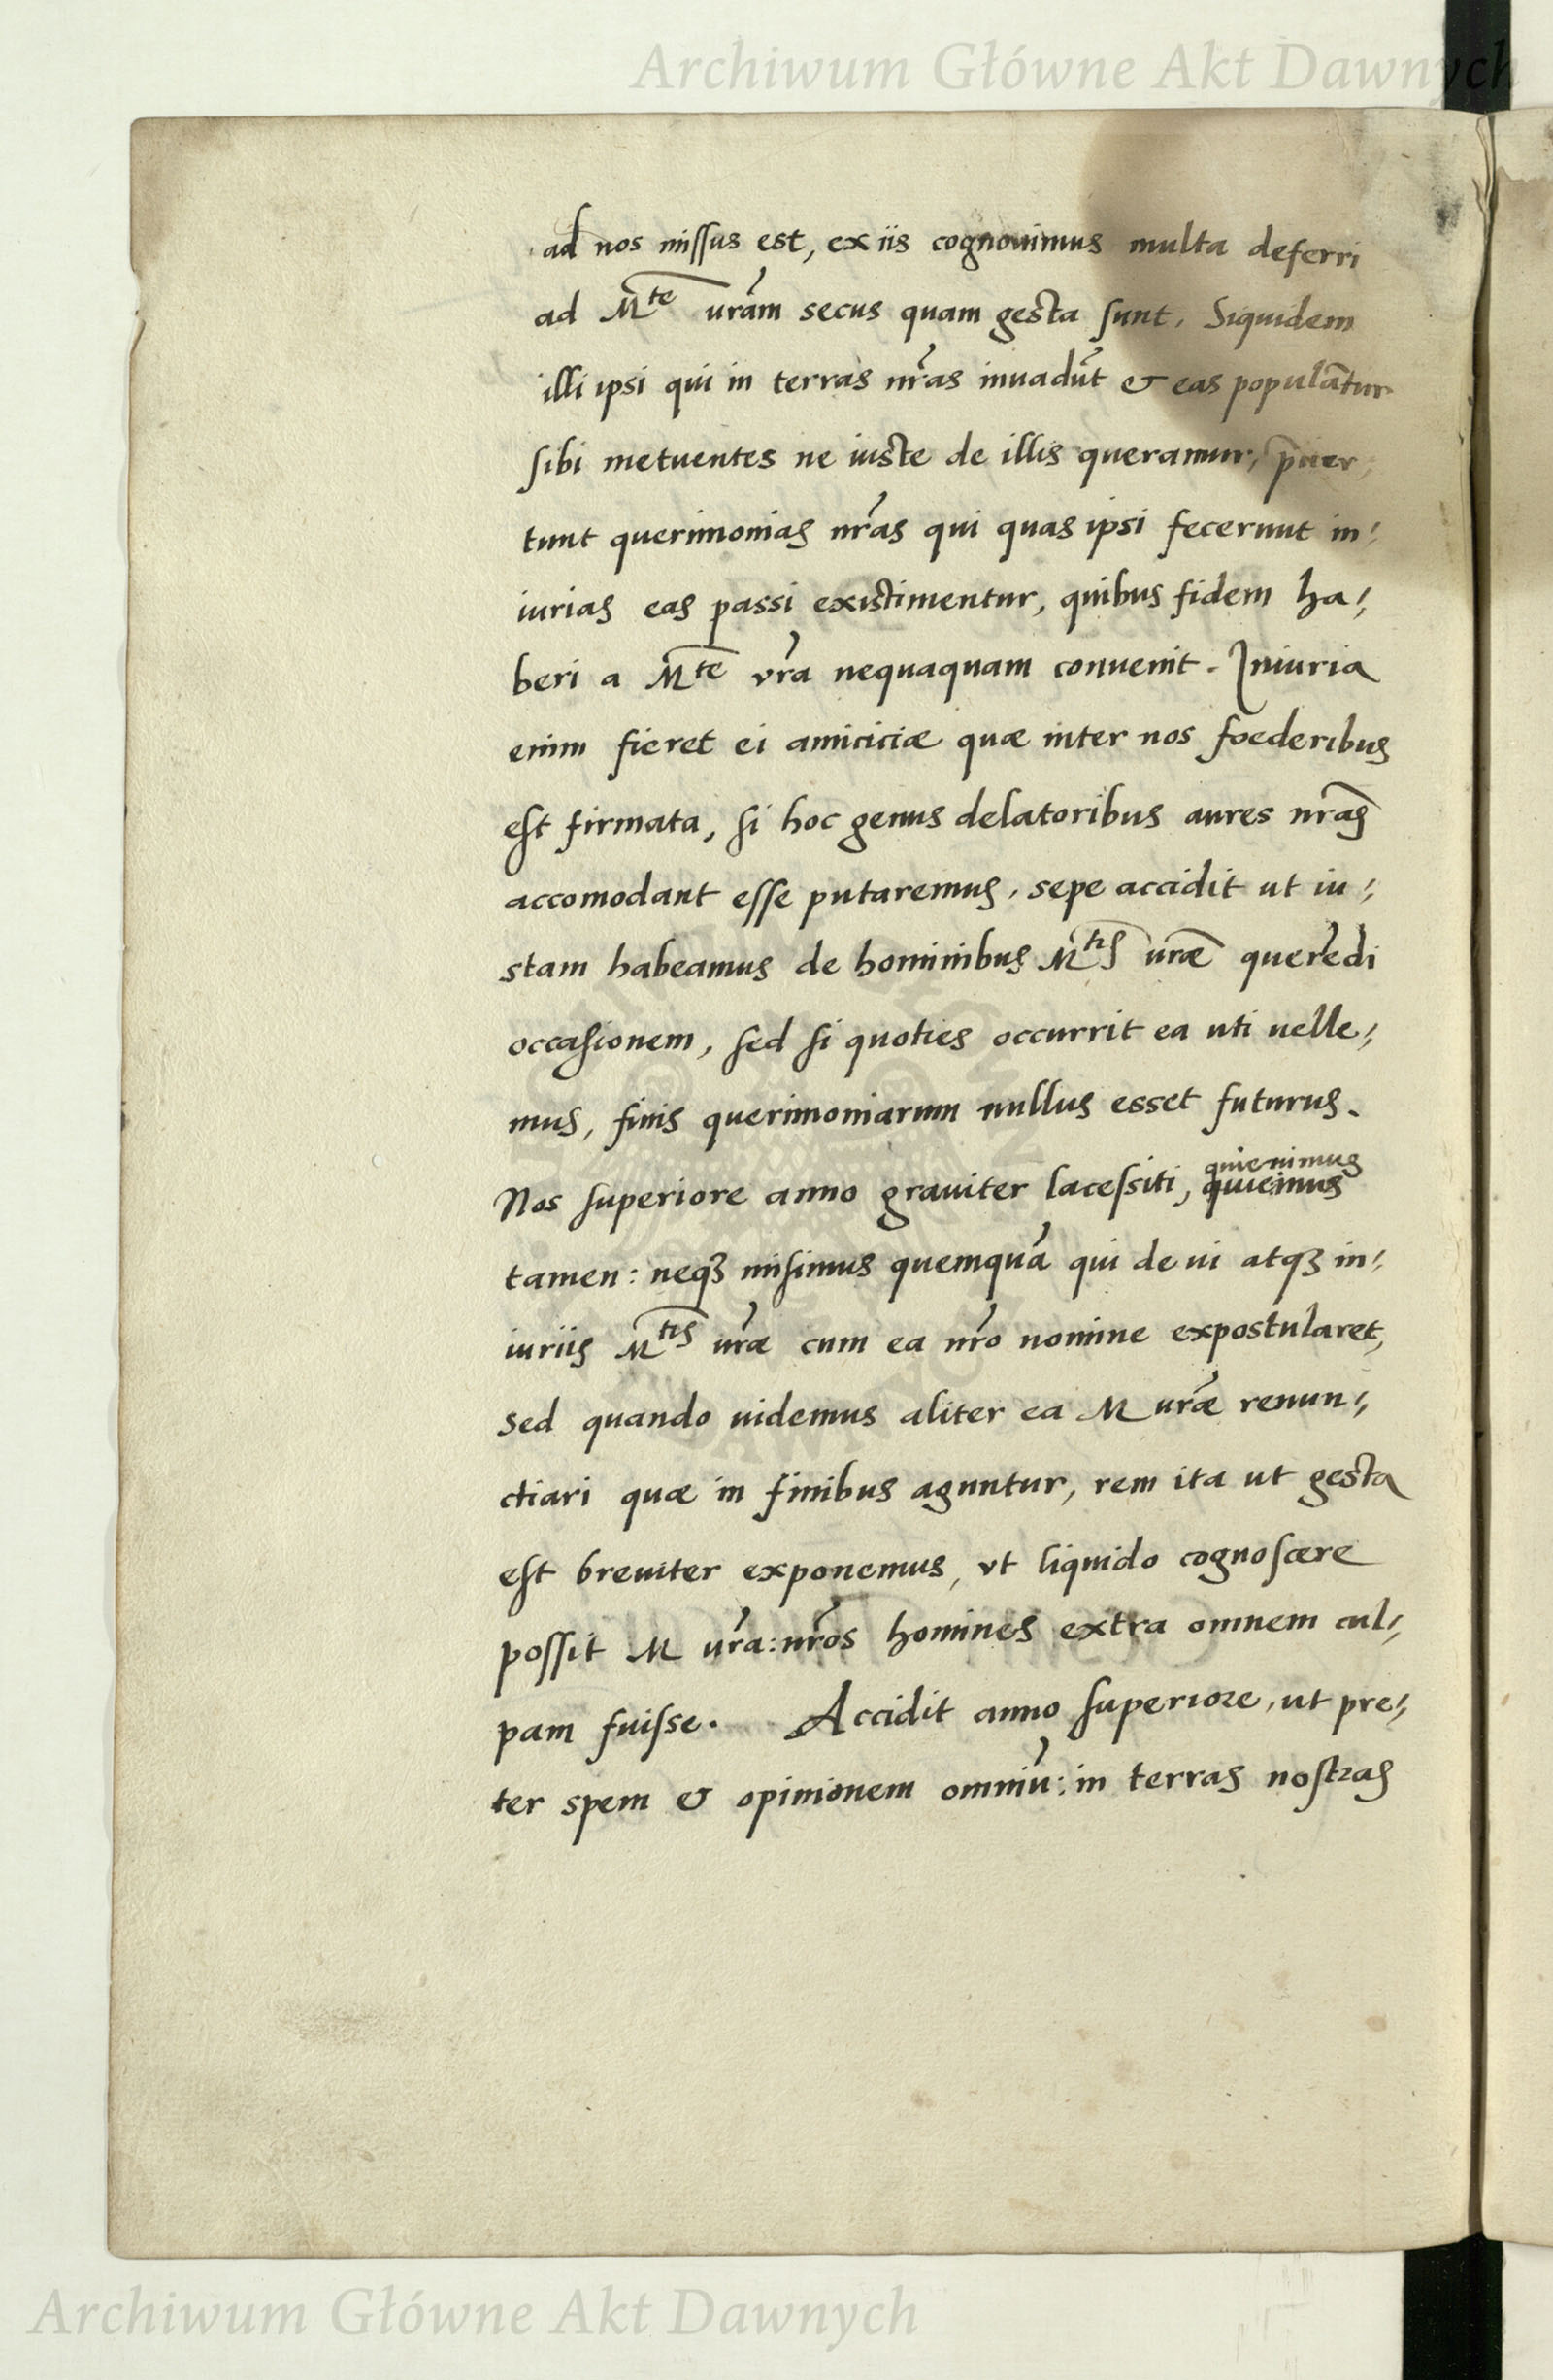 Archiwum Główne Akt Dawnych
ad nos missus est, ex iis cognouimus multa deferri
ad M^te urãm secus quam gesta sunt. Siquidem
illi ipsi qui in terras nr̃as inuadũt & eas populãtur
sibi metuentes ne iuste de illis queramur,
tunt querimonias nr̃as qui quas ipsi fecerunt in⸗
iurias eas passi existimentur, quibus fidem ha⸗
beri a M^te vr̃a nequaquam conuenit. Iniuria
enim fieret ei amiciciæ quæ inter nos foederibus
est firmata, si hoc genus delatoribus aures nr̃as
accomodant esse putaremus. sepe accidit ut iu⸗
stam habeamus de hominibus M^tis ur̃æ querẽdi
occasionem, sed si quoties occurrit ea uti uelle⸗
mus, finis querimoniarum nullus esset futurus.
quieuimus
Nos superiore anno grauiter lacessiti, quieuimus
tamen: neqꝫ misimus quemquã qui de ui atqꝫ in⸗
iuriis M^tis ur̃æ cum ea nr̃o nomine expostularet,
sed quando uidemus aliter ea M ur̃æ renun⸗
ctiari quæ in finibus aguntur, rem ita ut gesta
est breuiter exponemus, vt liquido cognoscere
possit M ur̃a: nr̃os homines extra omnem cul⸗
pam fuisse. Accidit anno superiore, ut pre⸗
ter spem & opinionem omniũ: in terras nostras
Archiwum Główne Akt Dawnych